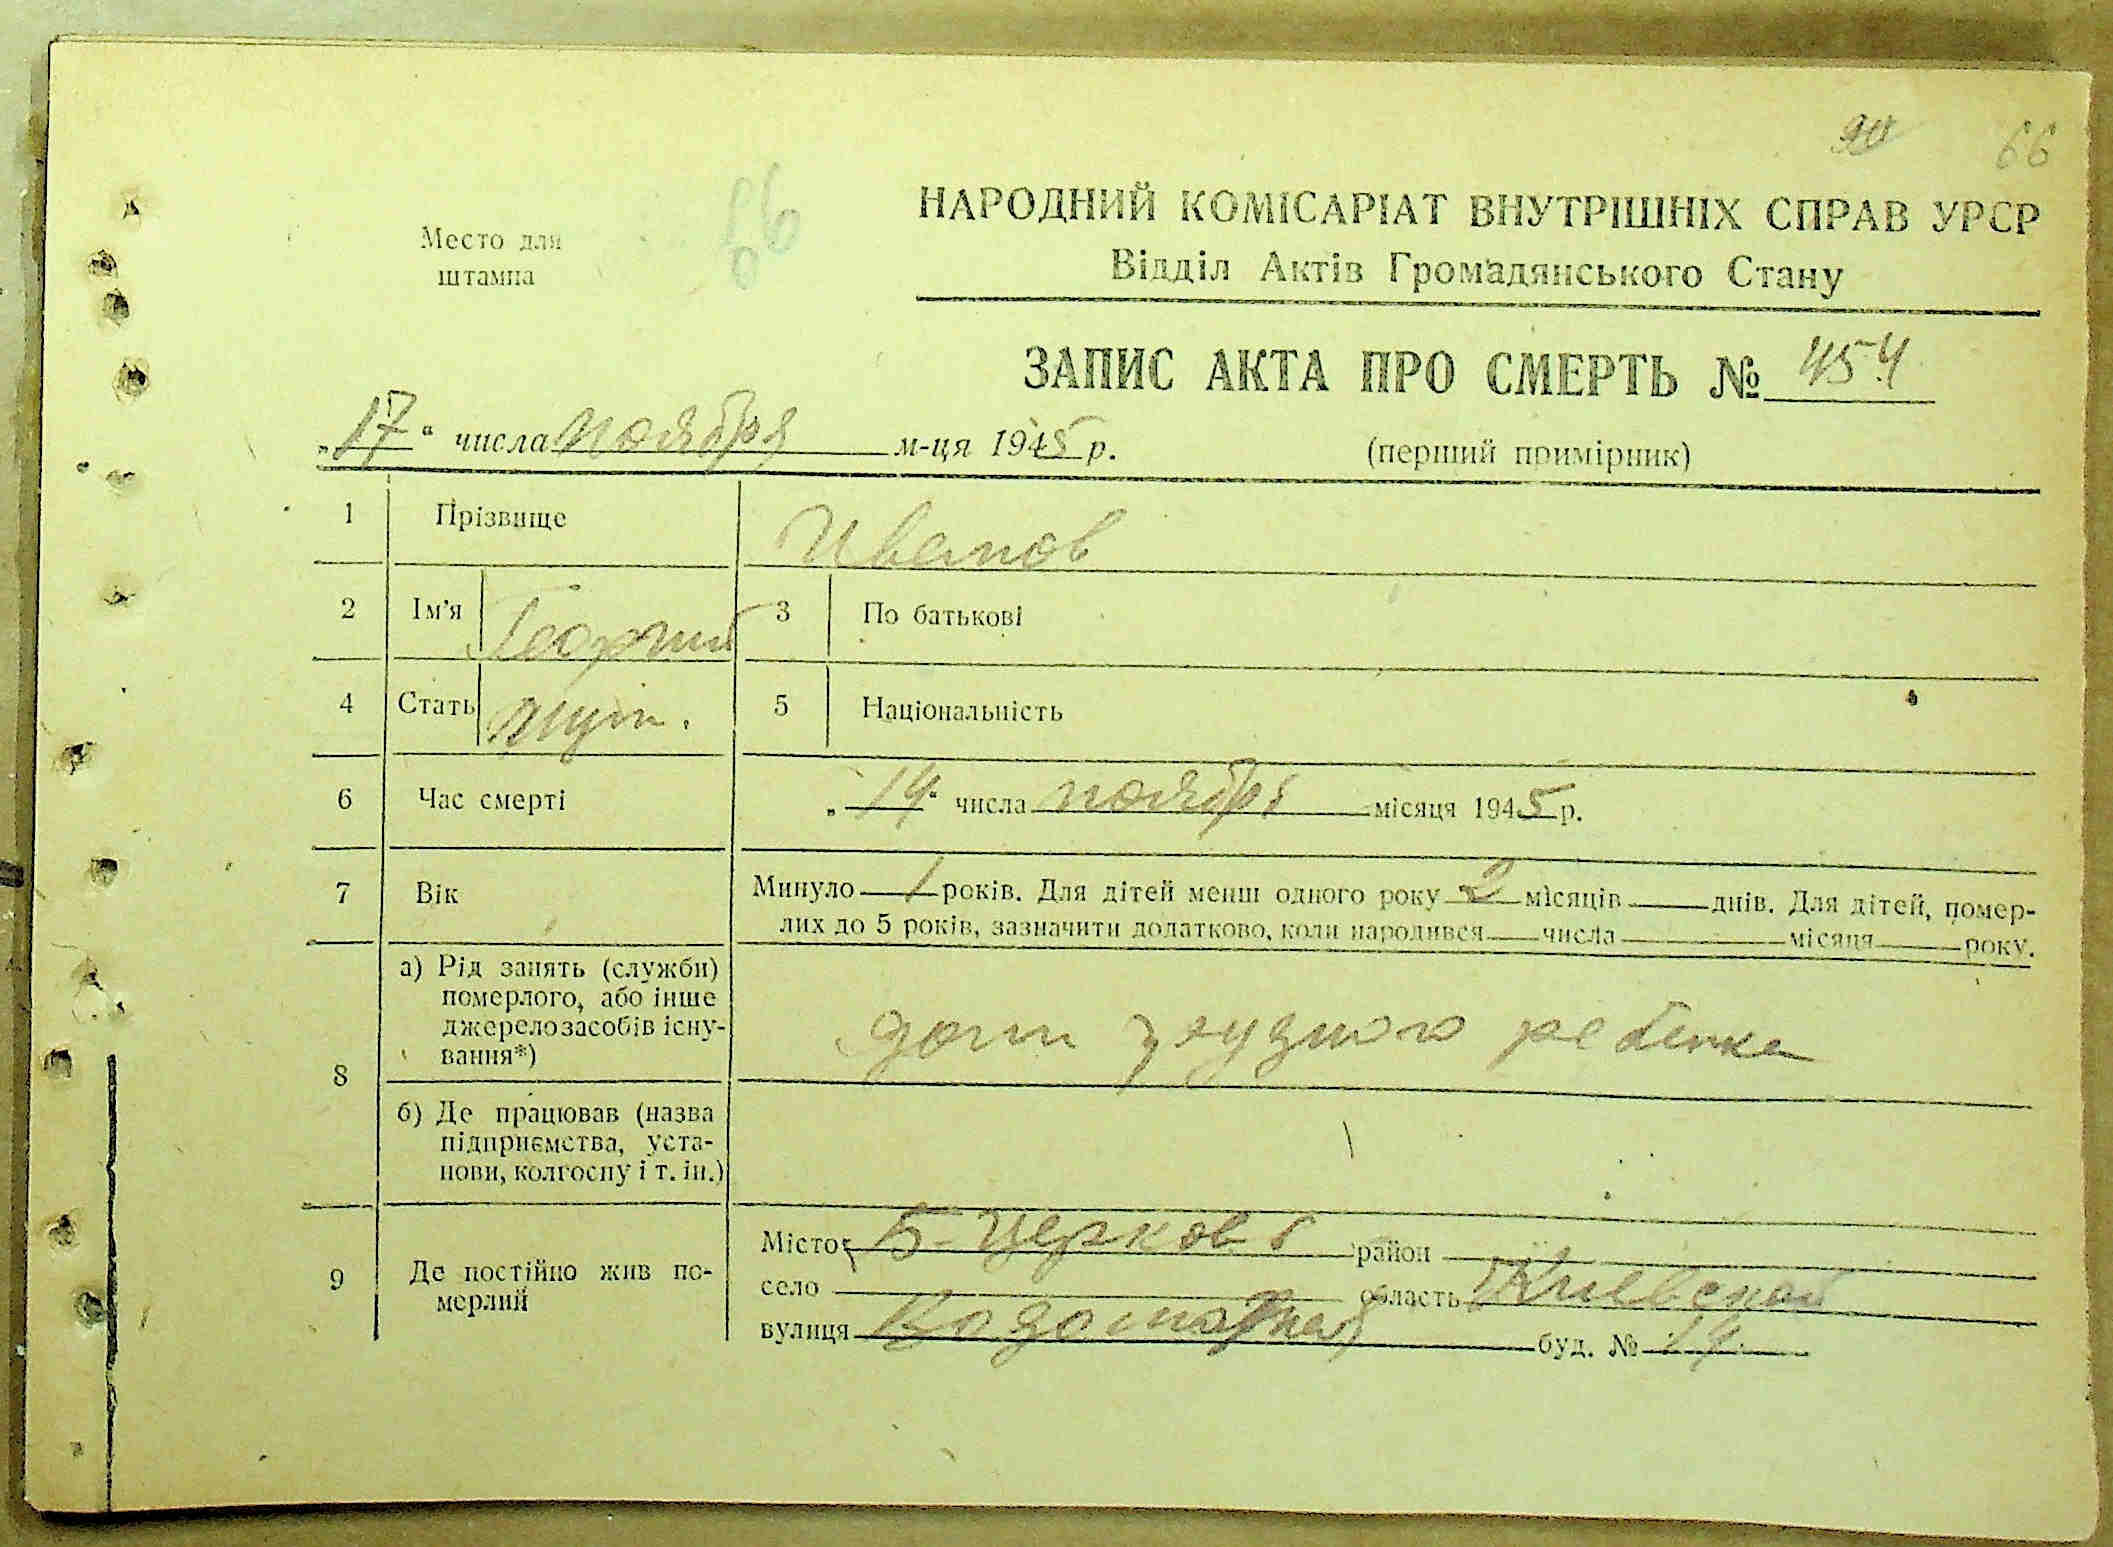 90 66
66
Место для
штампа
НАРОДНИЙ КОМІСАРІАТ ВНУТРІШНІХ СПРАВ УРСР
Відділ Актів Громадянського Стану
ЗАПИС АКТА ПРО СМЕРТЬ № 454
„17“ числа ноября м-ця 1945 р.
(перший примірник)
1 Прізвище Иванов
2 Ім’я Георгий 3 По батькові
4 Стать муж. 5 Національність
6 Час смерті „14“ числа ноября місяця 1945 р.
7 Вік Минуло 1 років. Для дітей менш одного року 2 місяців днів. Для дітей, помер-
лих до 5 років, зазначити додатково, коли народився числа місяця року.
8 а) Рід занять (служби)
померлого, або інше
джерело засобів існу-
вання*)
дом грудного ребенка
б) Де працював (назва
підприємства, уста-
нови, колгоспу і т. ін.)
9 Де постійно жив по-
мерлий
Місто Б-Церковь район
село область Киевской
вулиця буд. №